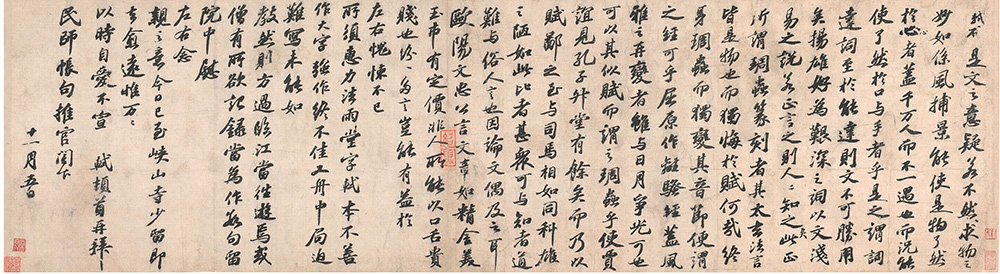 是文之意疑若不然求物之
妙如係風捕景能使是物了然
於心者蓋千万人而不一遇也而況能
使了然於口与手者乎是之謂詞
達詞至於能達則文不可勝用
矣揚雄好為艱深之詞以文淺
易之說若正言之則人〻知之矣此正
所謂琱蟲篆刻者其太玄法言
皆是物也而獨悔於賦何哉終
身琱蟲而獨變其音節便謂
之經可乎屈原作離騷經蓋風
雅之再變者雖与日月爭光可也
可以其似賦而謂之琱蟲乎使賈
誼見孔子升堂有餘矣而乃以
賦鄙之至与司馬相如同科雄
之陋如此比者甚衆可与知者道
難与俗人言也因論文偶及之耳
歐陽文忠公言文章如精金美
玉市有定價非人所能以口舌貴
賤也紛〻多言豈能有益於
左右愧悚不已
所須惠力法雨堂字軾本不善
作大字強作終不佳又舟中局迫
難寫未能如
教然則方過臨江當往遊焉或
僧有所欲記錄當為作數句留
院中慰
左右念
親之意今日已至峽山寺少留即
去愈遠惟万〻
以時自愛不宣 軾頓首再拜
民師帳句推官閣下
十一月五日